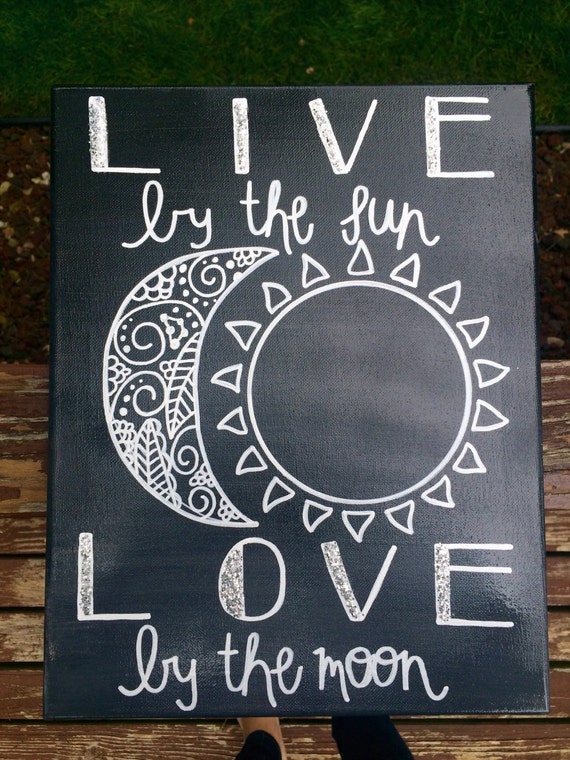 LIVE
by the sun
LOVE
by the moon